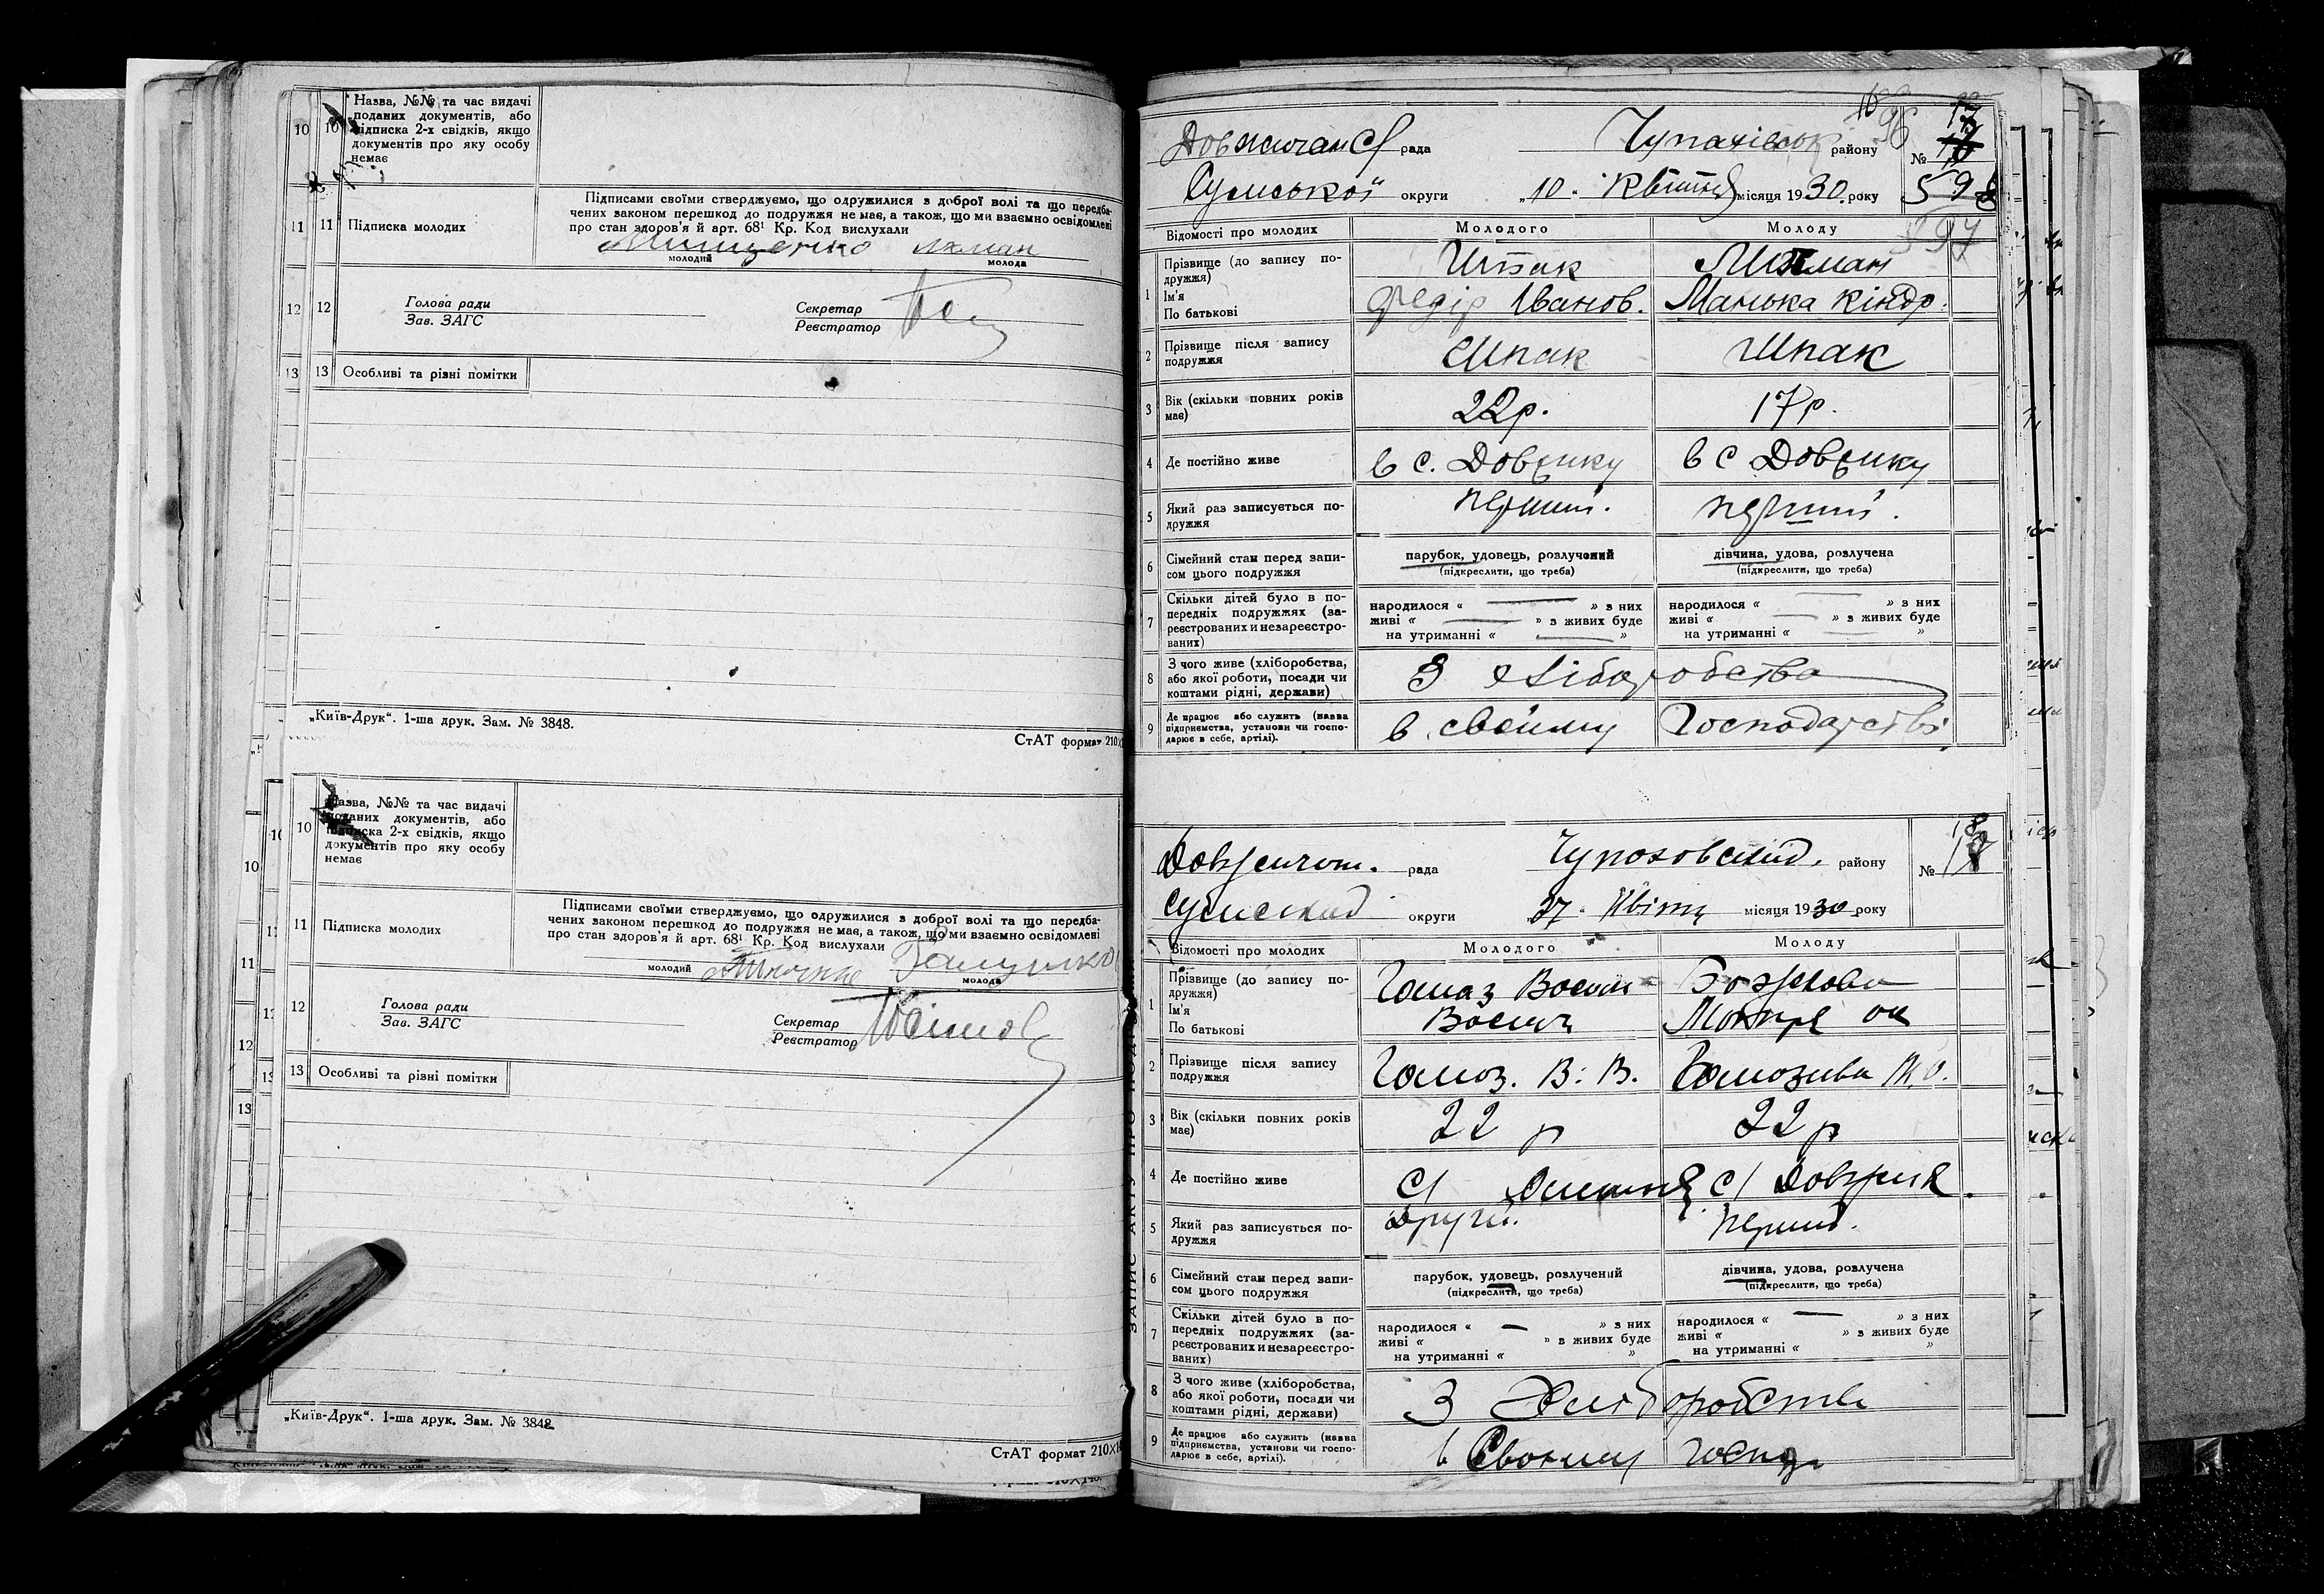 10 10 Назва, №№ та час видачі
поданих документів, або
підписка 2-х свідків, якщо
документів про яку особу
немає
Підписами своїми стверджуємо, що одружилися з доброї волі та що передба-
чених законом перешкод до подружжя не має, а також, що ми взаємно освідомлені
про стан здоров'я й арт. 68¹ Кр. Код вислухали
11 11 Підписка молодих
Мищенко
молодий молода
12 12 Голова ради
Зав. ЗАГС
Секретар
Реєстратор
13 13 Особливі та різні помітки
„Київ-Друк“. 1-ша друк. Зам. № 3848.
СтАТ формат 210
10 10 Назва, №№ та час видачі
поданих документів, або
підписка 2-х свідків, якщо
документів про яку особу
немає
Підписами своїми стверджуємо, що одружилися з доброї волі та що передба-
чених законом перешкод до подружжя не має, а також, що ми взаємно освідомлені
про стан здоров'я й арт. 68¹ Кр. Код вислухали
11 11 Підписка молодих
молодий молода
12 12 Голова ради
Зав. ЗАГС
Секретар
Реєстратор
13 13 Особливі та різні помітки
„Київ-Друк“. 1-ша друк. Зам. № 3848.
СтАТ формат 210
рада Чупахівськ району № 17
Сумської округи „10“ Квітня місяця 1930 року
597
Відомості про молодих Молодого Молоду
1 Прізвище (до запису по-
дружжя)
Ім'я
По батькові
Шпак
Федір Іванов. Манька Кіндр.
2 Прізвище після запису
подружжя
Шпак Шпак
3 Вік (скільки повних років
має)
22р. 17р.
4 Де постійно живе
в с. Довжику в с Довжику
5 Який раз записується по-
дружжя
перший. перший.
6 Сімейний стан перед запи-
сом цього подружжя
парубок, удовець, розлучений дівчина, удова, розлучена
(підкреслити, що треба) (підкреслити, що треба)
7 Скільки дітей було в по-
передніх подружжях (за-
реєстрованих и незареєстро-
ваних)
народилося « » з них народилося « » з них
живі « » з живих буде живі « » з живих буде
на утриманні « » на утриманні « »
8 З чого живе (хліборобства,
або якої роботи, посади чи
коштами рідні, держави)
З хліборобства
9 Де працює або служить (назва
підприємства, установи чи госпо-
дарює в себе, артілі).
в своїму Господарстві
рада району № 18
округи 27 місяця 1930 року
Відомості про молодих Молодого Молоду
1 Прізвище (до запису по-
дружжя)
Ім'я
По батькові
2 Прізвище після запису
подружжя
В. В.
3 Вік (скільки повних років
має)
22 р 22 р
4 Де постійно живе
С/ С/ Довжик.
5 Який раз записується по-
дружжя
Другий. перший.
6 Сімейний стан перед запи-
сом цього подружжя
парубок, удовець, розлучений дівчина, удова, розлучена
(підкреслити, що треба) (підкреслити, що треба)
7 Скільки дітей було в по-
передніх подружжях (за-
реєстрованих и незареєстро-
ваних)
народилося « » з них народилося « » з них
живі « » з живих буде живі « » з живих буде
на утриманні « » на утриманні « »
8 З чого живе (хліборобства,
або якої роботи, посади чи
коштами рідні, держави)
З Хліборобства
9 Де працює або служить (назва
підприємства, установи чи госпо-
дарює в себе, артілі).
в Своєму госпд